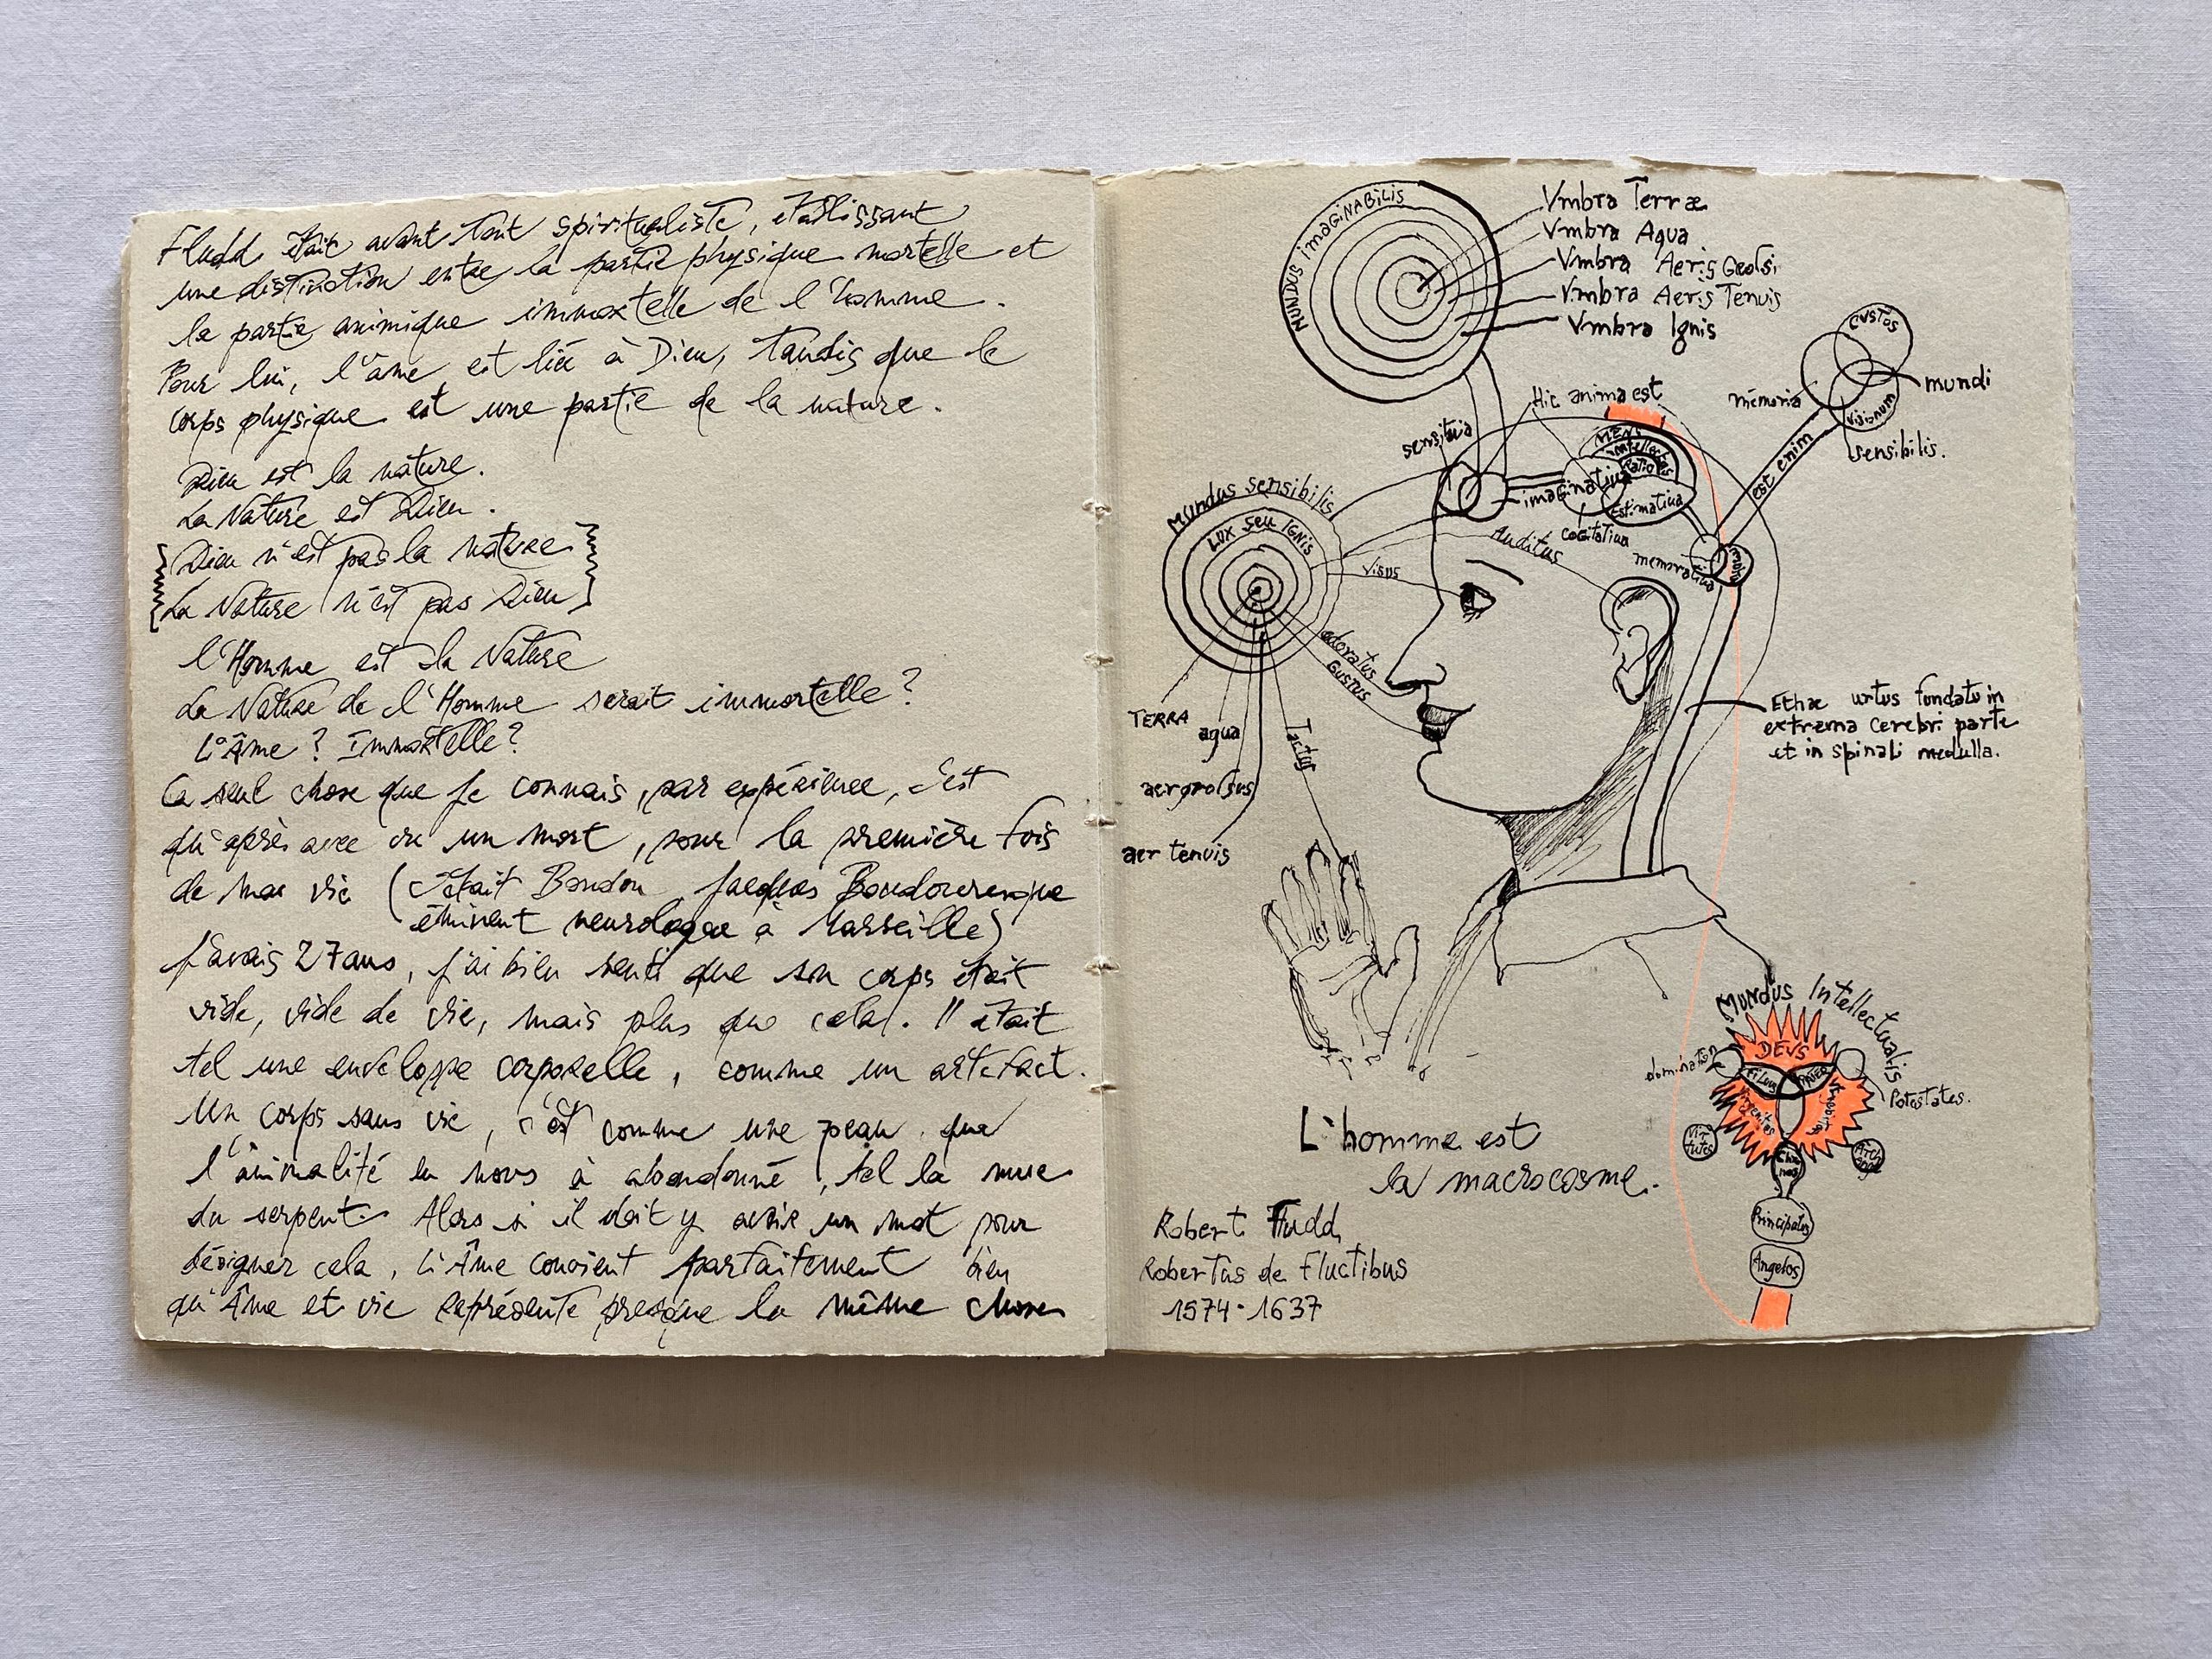 Fludd était avant tout spiritualiste, établissant
une distinction entre la partie physique mortelle et
la partie animique immortelle de l'Homme.
Pour lui, l'âme est liée à Dieu, tandis que le
corps physique est une partie de la nature.
Dieu est la nature.
La Nature est Dieu.
Dieu n'est pas la nature
La Nature n'est pas Dieu
l'Homme est la Nature
La Nature de l'Homme serait immortelle ?
L'Âme ? Immortelle ?
La seul chose que je connais, par expérience, c'est
qu'après avec vu un mort, pour la première fois
de ma vie (c'était Boudou, Jacques Boudouresque
éminent neurologue à Marseille)
j'avais 27 ans, j'ai bien senti que son corps était
vide, vide de vie, mais plus que cela. Il était
tel une enveloppe corporelle, comme un artefact.
Un corps sans vie, c'est comme une peau que
l'animalité en nous à abandonné, tel la mue
du serpent. Alors si il doit y avoir un mot pour
désigner cela, l'Âme convient parfaitement bien
qu'Âme et vie représente presque la même chose
MUNDUS IMAGINABILIS
Vmbra Terræ
Vmbra Aqua
Vmbra Aeris
Vmbra Aeris Tenuis
Vmbra Ignis
CVSTOS
mémoria
mundi
Visionum
sensibilis.
est enim
Hic anima est
sensitiva
MENS
intellectus
Ratio
imaginativa
Estimativa
Cogitativa
memorativa
Mundus sensibilis
LUX SEU IGNIS
Auditus
Visus
odoratus
GUSTUS
Tactus
TERRA
aqua
aer tenuis
fundata in
extrema cerebri parte
et in spinali medulla.
Mundus Intellectualis
DEVS
Filius
PATER
Potestates.
Virtutes
Principatus
Angelos
L'homme est
la macrocosme.
Robert Fludd,
Robertus de Fluctibus
1574-1637